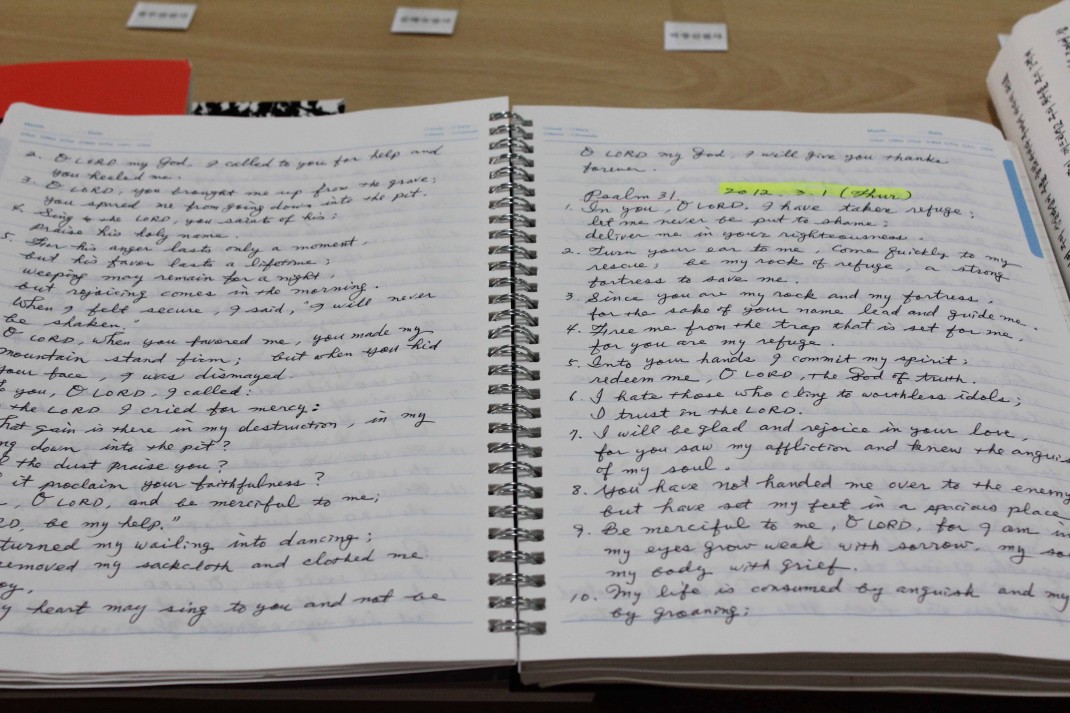 2. O LORD my God, I called to you for help and
you healed me.
3. O LORD, you brought me up from the grave;
you spared me from going down into the pit.
4. Sing to the LORD, you saints of his;
praise his holy name.
5. For his anger lasts only a moment,
but his favor lasts a lifetime;
weeping may remain for a night,
but rejoicing comes in the morning.
When I felt secure, I said, "I will never
be shaken."
O LORD, when you favored me, you made my
mountain stand firm; but when you hid
your face, I was dismayed.
to you, O LORD, I called:
the LORD I cried for mercy:
what gain is there in my destruction, in my
ng down into the pit?
the dust praise you?
it proclaim your faithfulness?
, O LORD, and be merciful to me;
RD, be my help."
turned my wailing into dancing;
removed my sackcloth and clothed me
oy,
y heart may sing to you and not be
O LORD my God, I will give you thanks
forever.
Psalm 31 2012. 3. 1 (Thur)
1. In you, O LORD, I have taken refuge;
let me never be put to shame;
deliver me in your righteousness.
2. Turn your ear to me Come quickly to my
rescue; be my rock of refuge, a strong
fortress to save me.
3. Since you are my rock and my fortress,
for the sake of your name lead and guide me.
4. Free me from the trap that is set for me,
for you are my refuge.
5. Into your hands I commit my spirit;
redeem me, O LORD, the God of truth.
6. I hate those who cling to worthless idols;
I trust in the LORD.
7. I will be glad and rejoice in your love,
for you saw my affliction and knew the anguis
of my soul.
8. You have not handed me over to the enemy
but have set my feet in a spacious place
9. Be merciful to me, O LORD, for I am in
my eyes grow weak with sorrow, my so
my body with grief.
10. My life is consumed by anguish and my
by groaning;